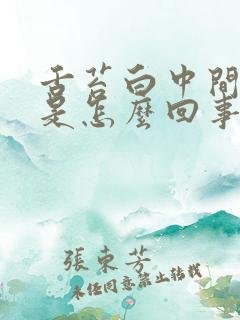 舌苔白中間
是怎麼回事
張東芳
未經同意禁止轉載